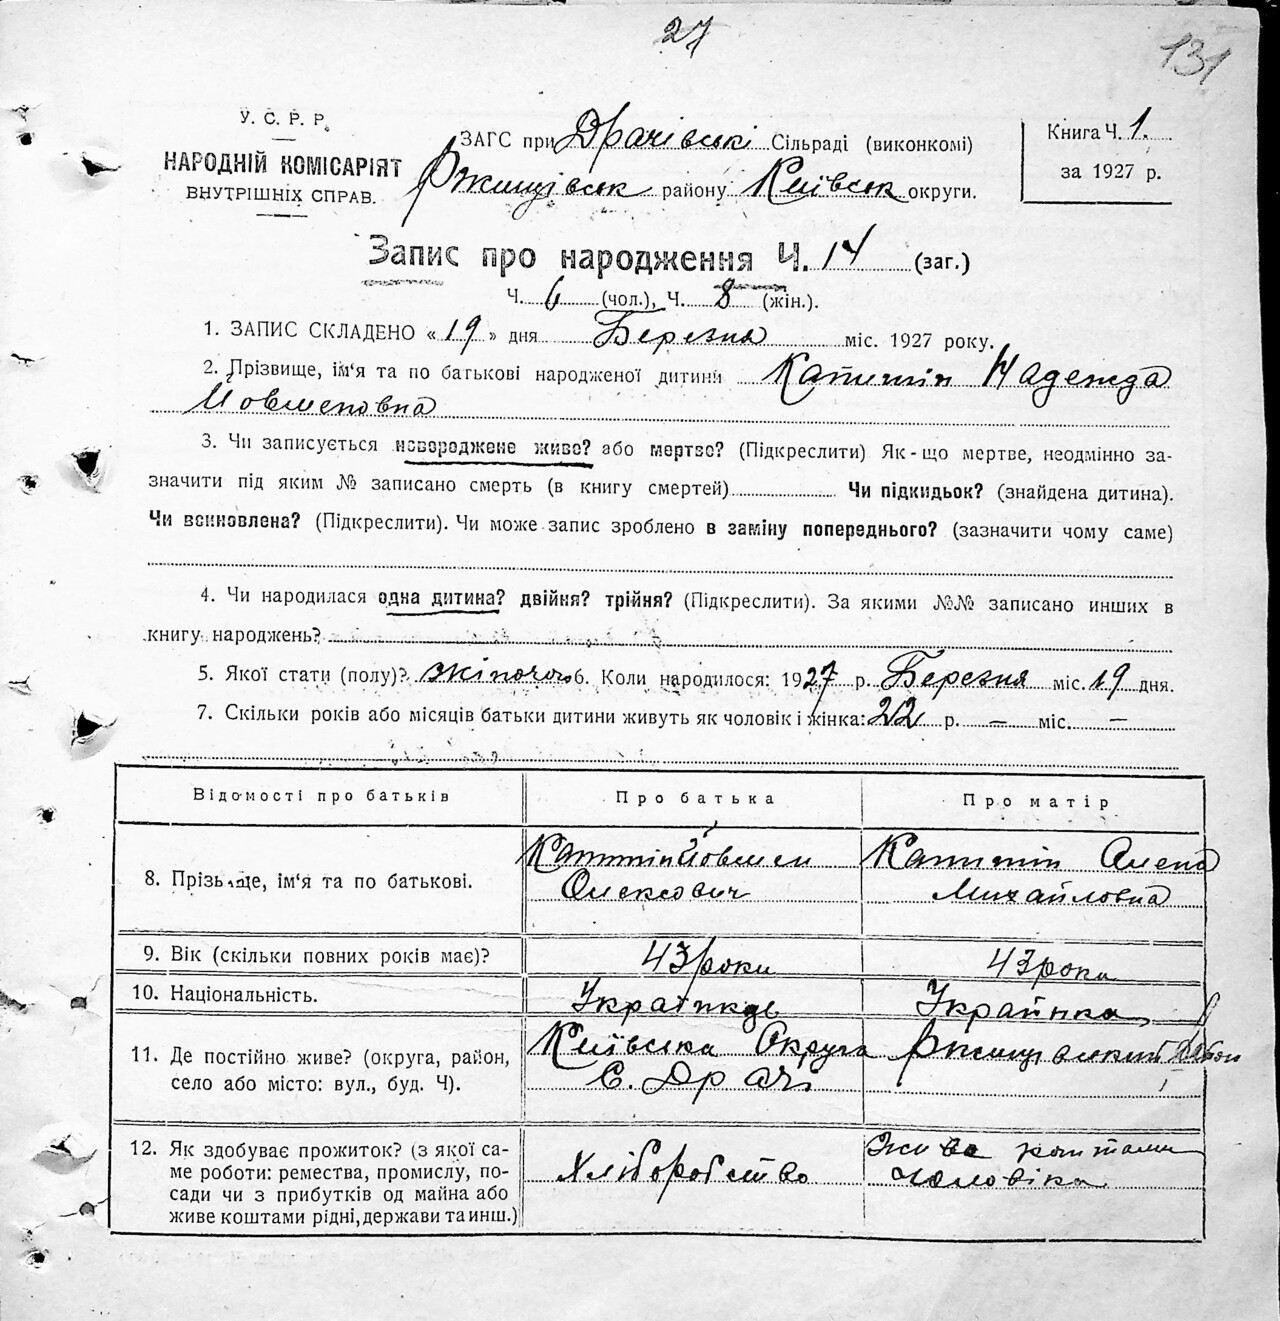 27
131
У. С. Р. Р.
НАРОДНІЙ КОМІСАРІЯТ
ВНУТРІШНІХ СПРАВ.
ЗАГС при Драчівські Сільраді (виконкомі)
Ржищівськ району Київськ округи.
Книга Ч. 1.
за 1927 р.
Запис про народження Ч. 14 (заг.)
Ч. 6 (чол.), Ч. 8 (жін.).
1. ЗАПИС СКЛАДЕНО « 19 » дня Березня міс. 1927 року.
2. Прізвище, ім'я та по батькові народженої дитини Надежда
Йовменовна
3. Чи записується новороджене живе? або мертве? (Підкреслити) Як-що мертве, неодмінно за-
значити під яким № записано смерть (в книгу смертей) Чи підкидьок? (знайдена дитина).
Чи всиновлена? (Підкреслити). Чи може запис зроблено в заміну попереднього? (зазначити чому саме)
4. Чи народилася одна дитина? двійня? трійня? (Підкреслити). За якими №№ записано инших в
книгу народжень?
5. Якої стати (полу)? жіночої 6. Коли народилося: 1927 р. Березня міс. 19 дня.
7. Скільки років або місяців батьки дитини живуть як чоловік і жінка: 22 р. — міс. —
Відомості про батьків
Про батька
Про матір
8. Прізвище, ім'я та по батькові.
Йовмен
Олексович
Олена
Михайловна
9. Вік (скільки повних років має)?
43 роки
43 роки
10. Національність.
Українка
11. Де постійно живе? (округа, район,
село або місто: вул., буд. Ч).
Київська Округа Ржищівский район
С. Драчі
12. Як здобуває прожиток? (з якої са-
ме роботи: ремества, промислу, по-
сади чи з прибутків од майна або
живе коштами рідні, держави та инш.)
Хліборобство
Живе коштами
чоловіка